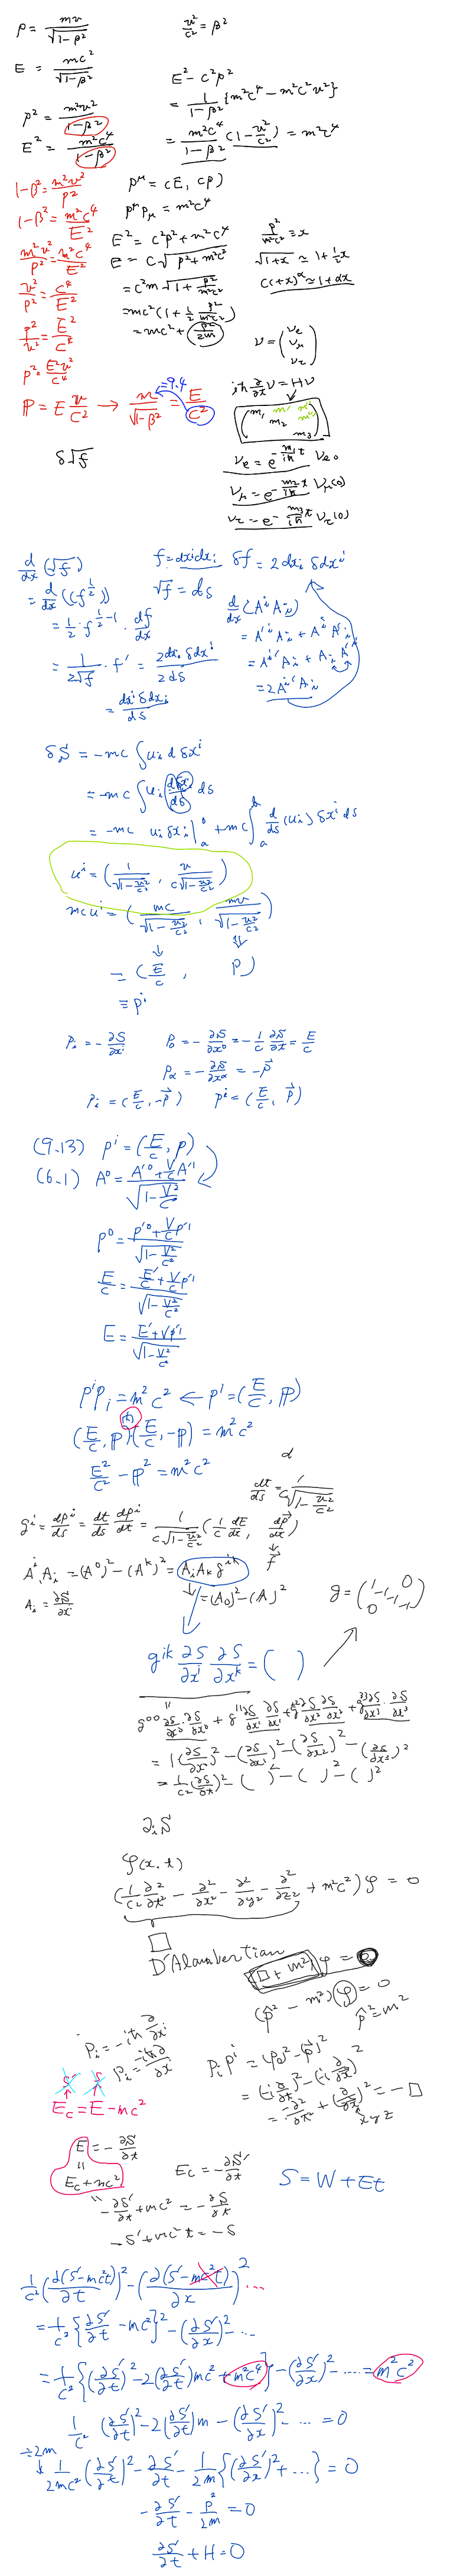 p = mv/√(1-β²)
v²/c² = β²
E = mc²/√(1-β²)
p² = m²v²/(1-β²)
E² = m²c⁴/(1-β²)
E² - c²p²
= 1/(1-β²) {m²c⁴ - m²c²v²}
= m²c⁴/(1-β²) (1 - v²/c²) = m²c⁴
1-β² = m²v²/p²
1-β² = m²c⁴/E²
m²v²/p² = m²c⁴/E²
v²/p² = c⁴/E²
p²/v² = E²/c⁴
p² = E²v²/c⁴
p^μ = (E, cp)
p^μ p_μ = m²c⁴
E² = c²p² + m²c⁴
E = c√(p² + m²c²)
= c²m√(1 + p²/m²c²)
= mc²(1 + 1/2 p²/m²c²)
= mc² + p²/2m
p²/m²c² = x
√(1+x) ≃ 1 + 1/2 x
(1+x)^α ≃ 1 + αx
ℙ = E v/c² → m/√(1-β²) = E/c²
=9.4
ν = (ν_e ν_μ ν_τ)
iħ ∂/∂x ν = Hν
(m₁ m₂ m₃)
ν_e = e^(-m₁/iħ t) ν_e0
ν_μ = e^(-m₂/iħ t) ν_μ(0)
ν_τ = e^(-m₃/iħ t) ν_τ(0)
δ√f
d/dx (√f)
= d/dx ((f^(1/2)))
= 1/2 · f^(1/2 - 1) · df/dx
= 1/(2√f) · f' = 2dx_i δdx^i / 2ds
= dx^i δdx_i / ds
f = dx_i dx_i δf = 2dx_i δdx^i
√f = ds
d/dx (A^i A_i)
= A^i' A_i + A^i A_i'
= A^i' A_i + A_i A^i'
= 2A^i' A_i
δS = -mc ∫u_i dδx^i
= -mc ∫u_i dδx^i/ds ds
= -mc u_i δx^i |_a^b + mc ∫_a^b d/ds (u_i) δx^i ds
u^i = (1/√(1-v²/c²), v/c√(1-v²/c²))
mcu^i = (mc/√(1-v²/c²), mv/√(1-v²/c²))
= (E/c, p)
≡ p^i
p_i = -∂S/∂x^i p_0 = -∂S/∂x⁰ = -1/c ∂S/∂t = E/c
p_α = -∂S/∂x^α = -p⃗
p_i = (E/c, -p⃗) p^i = (E/c, p⃗)
(9.13) p^i = (E/c, p)
(6.1) A⁰ = (A'⁰ + V/c A'¹)/√(1-V²/c²)
p⁰ = (p'⁰ + V/c p'¹)/√(1-V²/c²)
E/c = (E'/c + V/c p'¹)/√(1-V²/c²)
E = (E' + Vp'¹)/√(1-V²/c²)
p^i p_i = m²c² ← p^i = (E/c, ℙ)
(E/c, ℙ)(E/c, -ℙ) = m²c²
E²/c² - ℙ² = m²c²
d
dt/ds = 1/c√(1-v²/c²)
g^i = dp^i/ds = dt/ds dp^i/dt = 1/c√(1-v²/c²) (1/c dE/dt, dp⃗/dt)
f⃗
A^i A_i = (A⁰)² - (A^k)² = A_i A_k g^ik
= (A₀)² - (A)²
A_i = ∂S/∂x^i
g = (1 -1 -1 -1 0 0)
g^ik ∂S/∂x^i ∂S/∂x^k = ( )
g⁰⁰ ∂S/∂x⁰ · ∂S/∂x⁰ + g¹¹ ∂S/∂x¹ ∂S/∂x¹ + g²² ∂S/∂x² ∂S/∂x² + g³³ ∂S/∂x³ · ∂S/∂x³
= 1(∂S/∂x⁰)² - (∂S/∂x¹)² - (∂S/∂x²)² - (∂S/∂x³)²
= 1/c² (∂S/∂t)² - ( )² - ( )² - ( )²
∂_i S
φ(x,t)
(1/c² ∂²/∂t² - ∂²/∂x² - ∂²/∂y² - ∂²/∂z² + m²c²)φ = 0
□
D'Alambertian
(□ + m²)φ = 0
(p̂² - m²)φ = 0
p̂² = m²
p_i = -iħ ∂/∂x^i
p_i = -iħ∂/∂x
S' S
E_c = E - mc²
p_i p^i = (p₀)² - (p⃗)²
= (-i ∂/∂t)² - (-i ∂/∂x)²
= -∂²/∂t² + (∂/∂x)² = -□
xyz
E = -∂S/∂t
E_c + mc²
E_c = -∂S'/∂t
S = W + Et
-∂S'/∂t + mc² = -∂S/∂t
-S' + mc²t = -S
1/c² (∂(S'-mc²t)/∂t)² - (∂(S'-mc²t)/∂x)² ...
= 1/c² {∂S'/∂t - mc²}² - (∂S'/∂x)² - ...
= 1/c² {(∂S'/∂t)² - 2(∂S'/∂t)mc² + m²c⁴} - (∂S'/∂x)² - .... = m²c²
1/c² (∂S'/∂t)² - 2(∂S'/∂t)m - (∂S'/∂x)² - ... = 0
÷2m
↓ 1/2mc² (∂S'/∂t)² - ∂S'/∂t - 1/2m {(∂S'/∂x)² + ...} = 0
-∂S'/∂t - p²/2m = 0
∂S'/∂t + H = 0